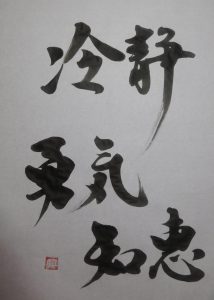 冷静
勇気
知恵